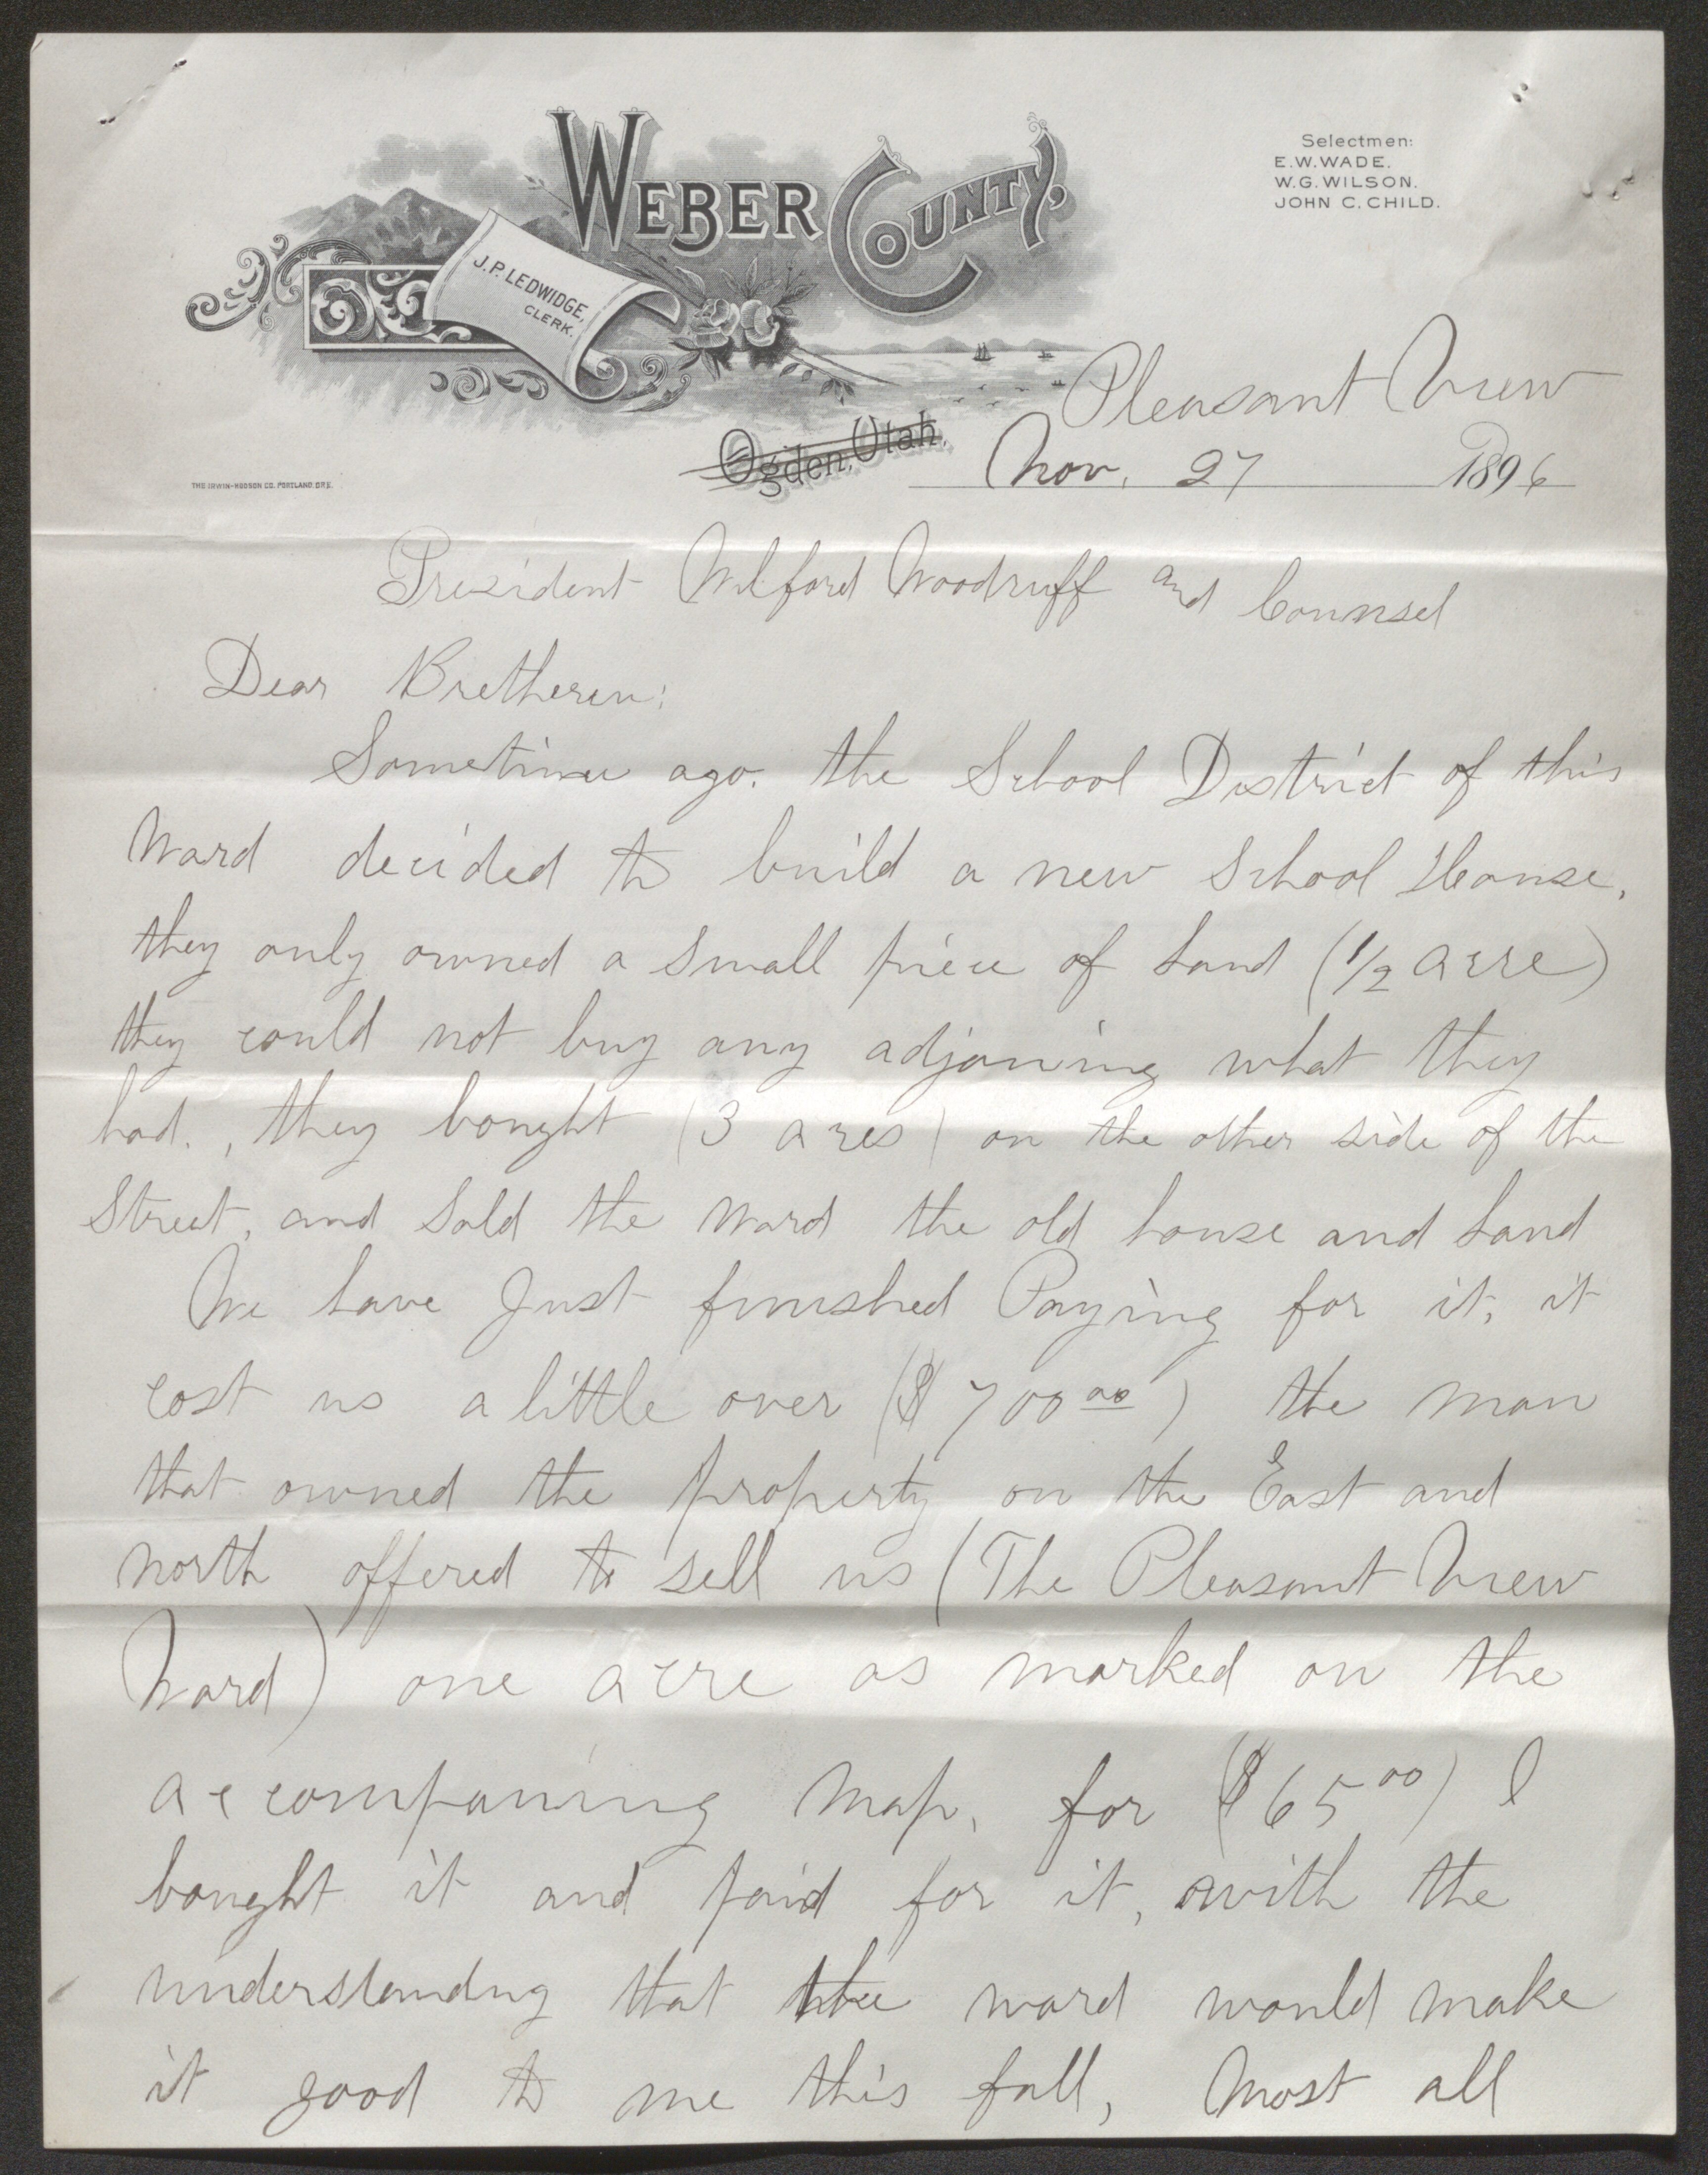 WEBER COUNTY,
J.P. LEDWIDGE,
CLERK.
Selectmen:
E.W. WADE.
W.G. WILSON.
JOHN C. CHILD.
Pleasant View
Ogden, Utah. Nov. 27 1896
THE IRWIN-HODSON CO. PORTLAND, ORE.
President Wilford Woodruff and Counsel
Dear Bretheren:
Sometime ago. the School District of this
Ward decided to build a new School House,
they only owned a small piece of Land (1/2 acre)
they could not buy any adjoining what they
had., they bought (3 acres) on the other side of the
Street, and Sold the Ward the old house and Land
We have Just finished Paying for it, it
cost us a little over ($700 00) the man
that owned the property on the East and
north offered to sell us (The Pleasant View
Ward) one acre as marked on the
accompaning Map, for ($65 00) I
bought it and paid for it, with the
understanding that the ward would make
it good to me this fall, Most all